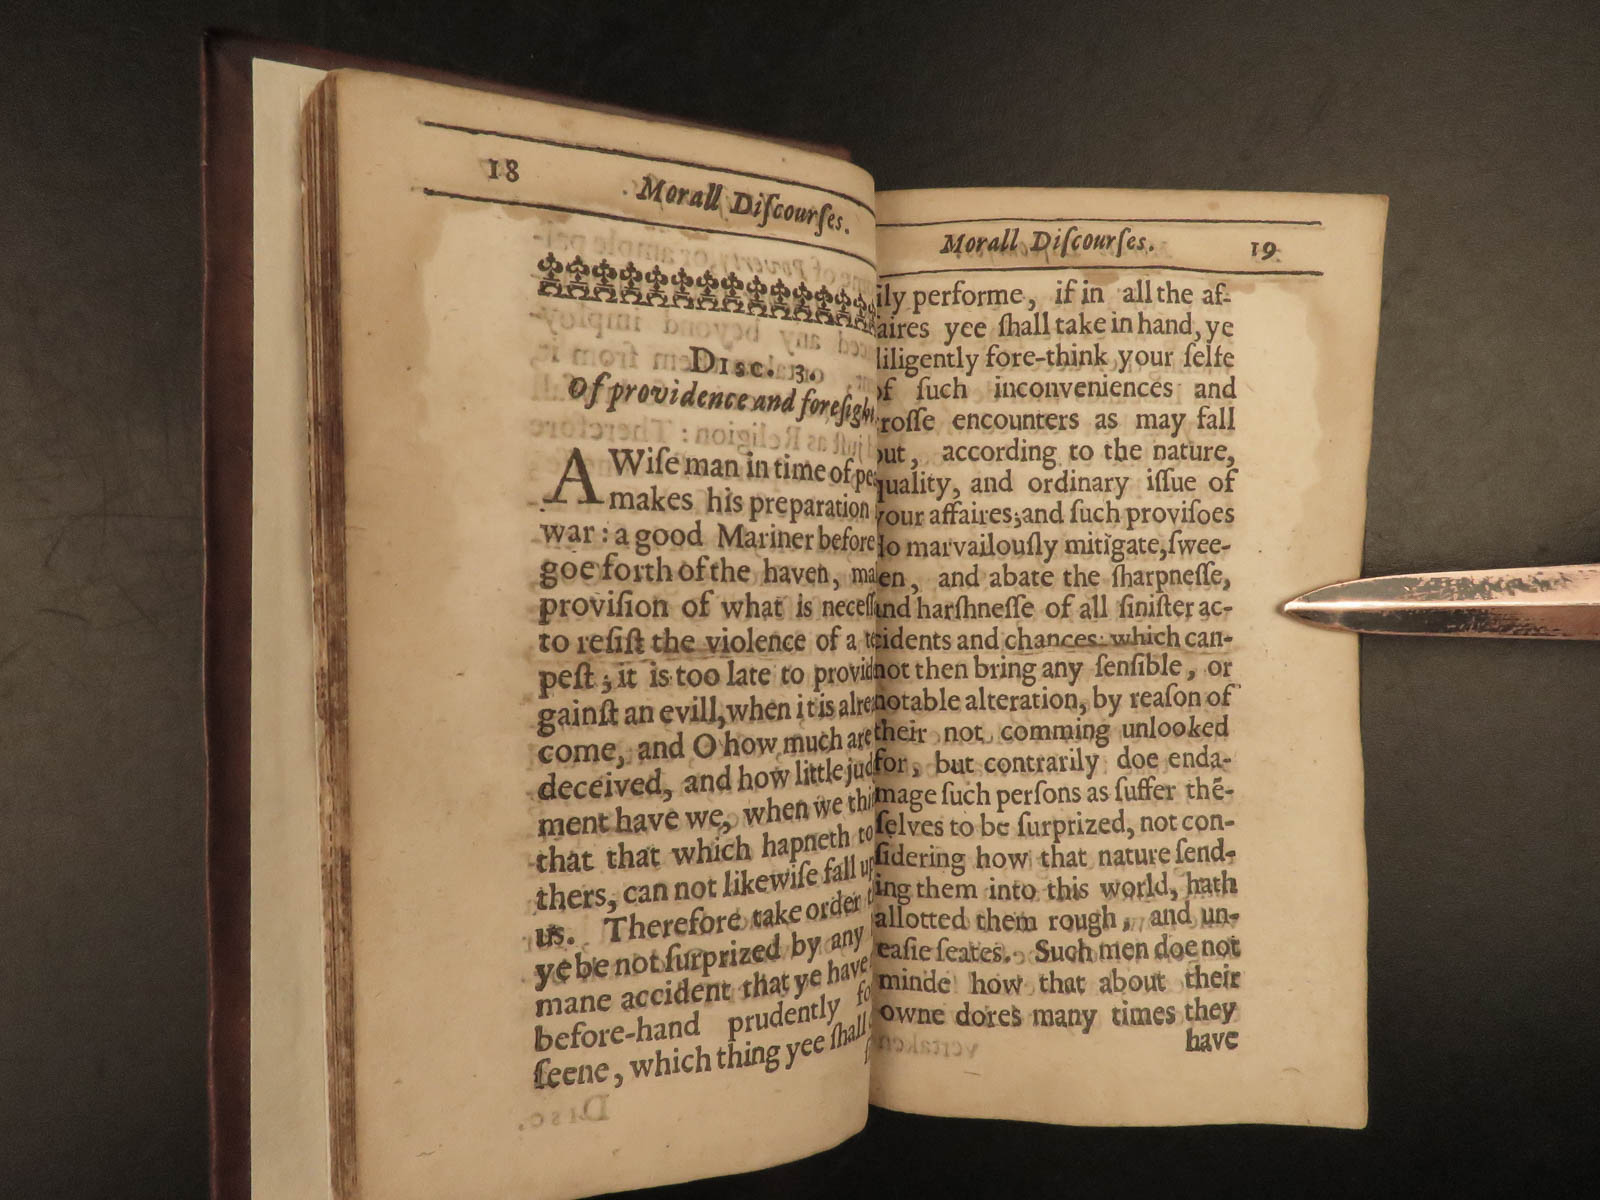 18
Morall Diſcourſes.
Disc. 3.
Of providence and foreſigh
A Wiſe man in time of pe
makes his preparation
war: a good Mariner before
goe forth of the haven, ma
proviſion of what is neceſſ
to reſiſt the violence of a te
peſt; it is too late to provid
gainſt an evill, when it is alre
come, and O how much are
deceived, and how little jud
ment have we, when we thi
that that which hapneth to
thers, can not likewiſe fall up
us. Therefore take order t
ye be not ſurprized by any
mane accident that ye have
before-hand prudently fo
ſeene, which thing yee ſhall
Morall Diſcourſes. 19
ily performe, if in all the af-
aires yee ſhall take in hand, ye
diligently fore-think your ſelfe
of ſuch inconveniences and
roſſe encounters as may fall
out, according to the nature,
quality, and ordinary iſſue of
your affaires; and ſuch proviſoes
do marvailouſly mitigate, ſwee-
en, and abate the ſharpneſſe,
and harſhneſſe of all ſiniſter ac-
cidents and chances: which can-
not then bring any ſenſible, or
notable alteration, by reaſon of
their not comming unlooked
for, but contrarily doe enda-
mage ſuch perſons as ſuffer thē-
ſelves to be ſurprized, not con-
ſidering how that nature ſend-
ing them into this world, hath
allotted them rough, and un-
eaſie ſeates. Such men doe not
minde how that about their
owne dores many times they
have